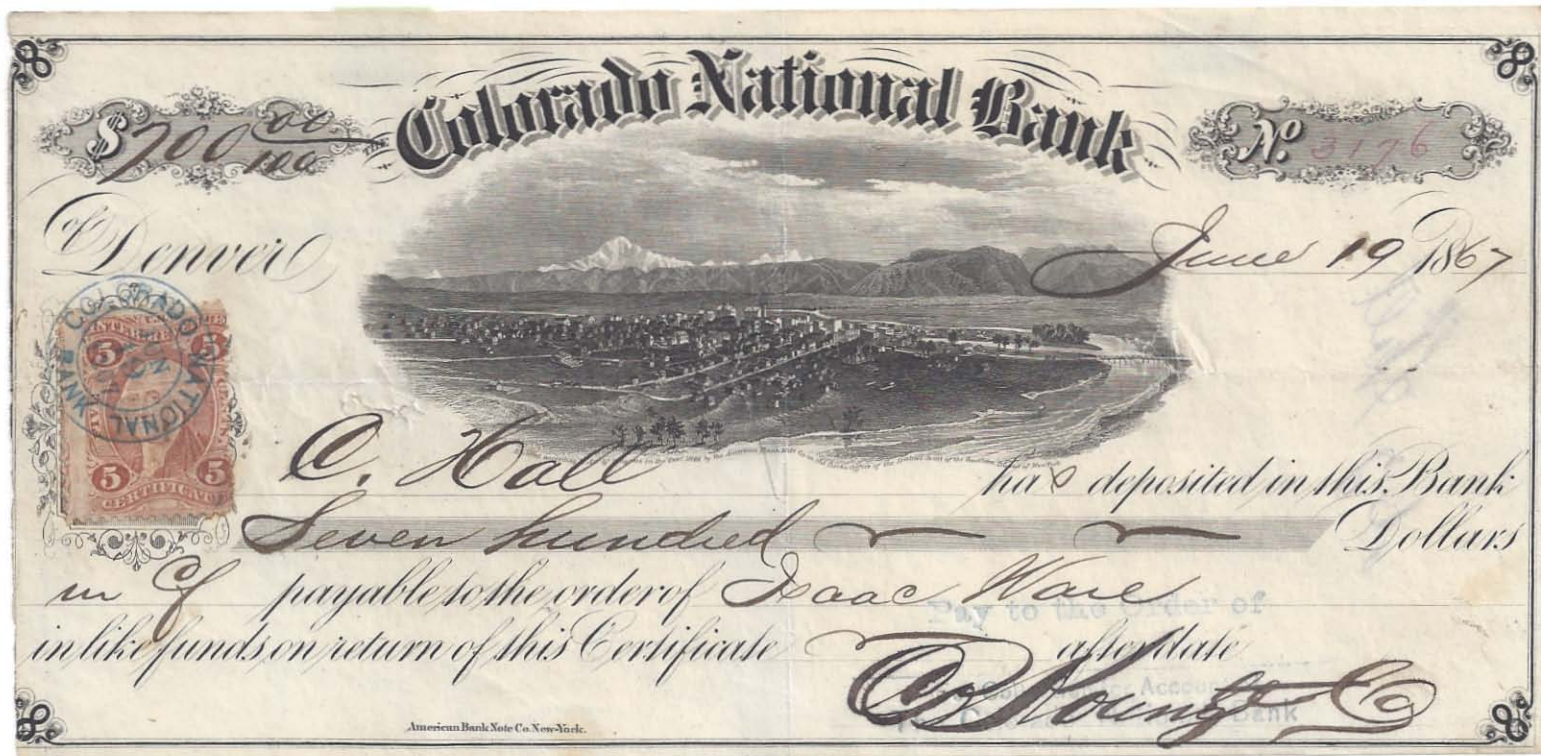 $700 00/100
THE Colorado National Bank
No. 3176
of Denver
June 19 1867
COLORADO NATIONAL BANK
JUN 19
5 5
5 5
CERTIFICATE
C. Hall has deposited in this Bank
Seven hundred Dollars
in payable to the order of Isaac Ware
Pay to the Order of
in like funds on return of this Certificate after date
Account
Bank
American Bank Note Co. New-York.